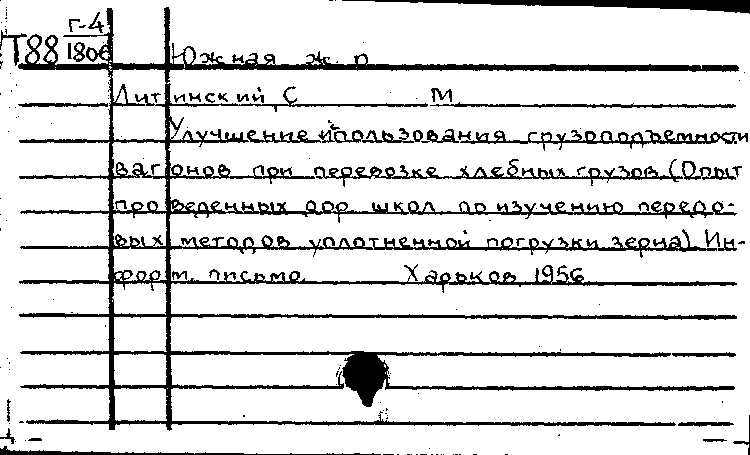 Г-4
Т88 1806 Южная ж. д.
Литинский, С М
Улучшение использования грузоподъемности
вагонов при перевозке хлебных грузов. (Опыт
проведенных дор. школ по изучению передо-
вых методов уплотненной погрузки зерна). Ин-
форм. письмо. Харьков, 1956